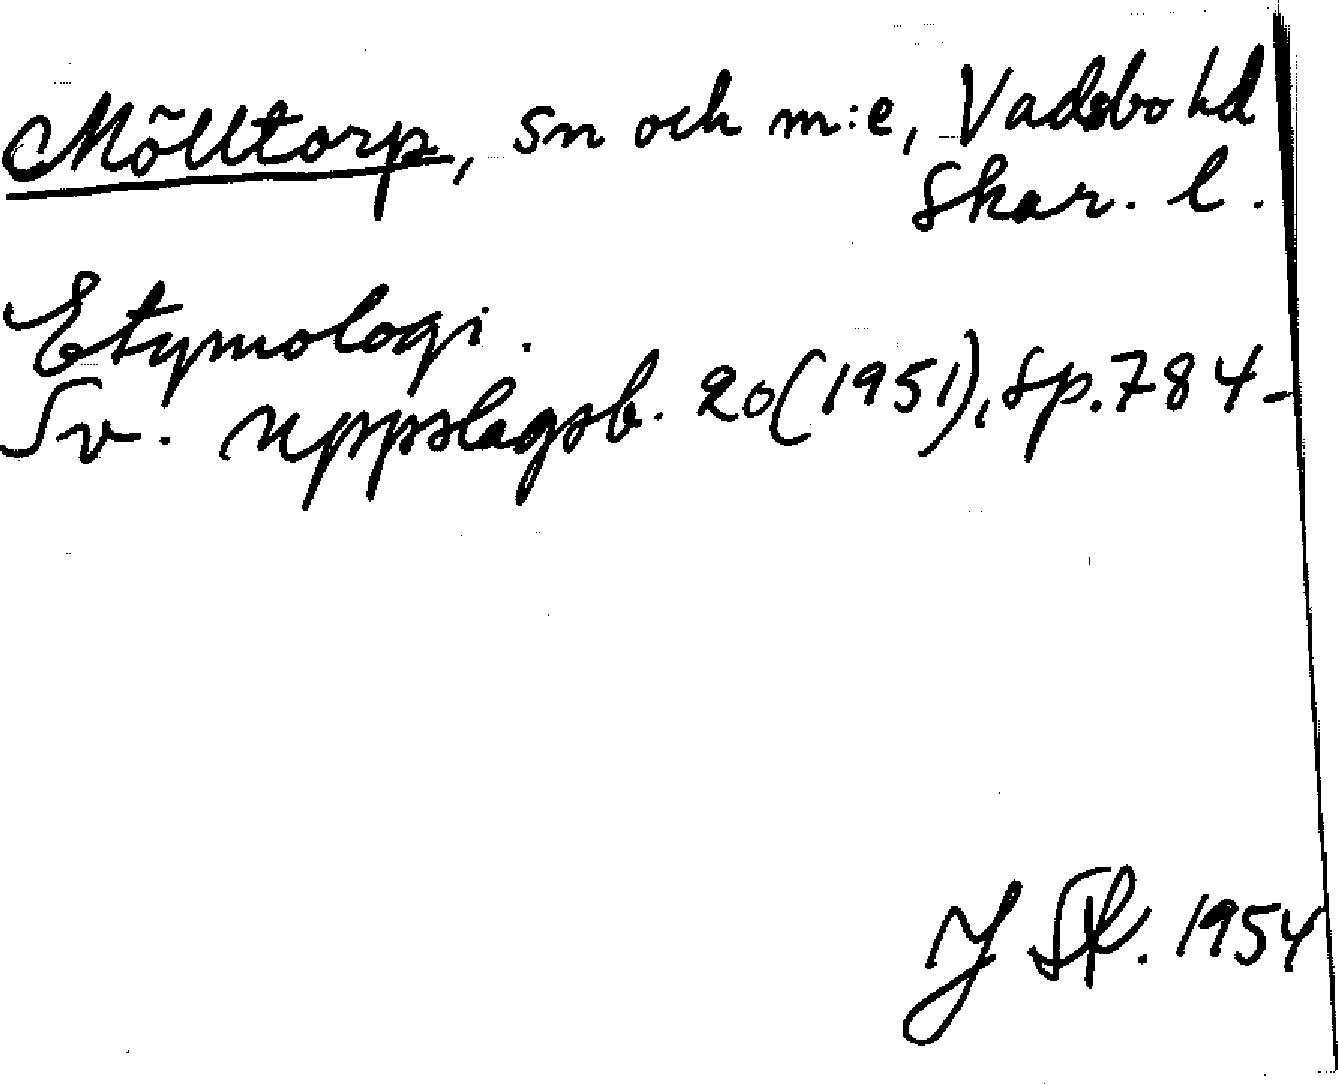 Mölltorp, sn och m:e, Vadsbo hd
Skar. l.
Etymologi.
Sv. uppslagsb. 20(1951), sp. 784-
1954